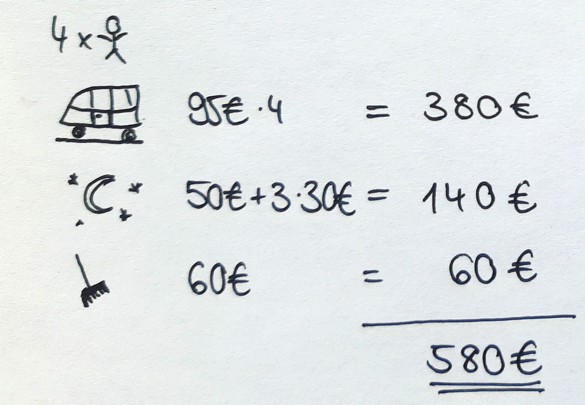 4 x
95€ · 4 = 380 €
50€ + 3 · 30€ = 140 €
60€ = 60 €
580 €